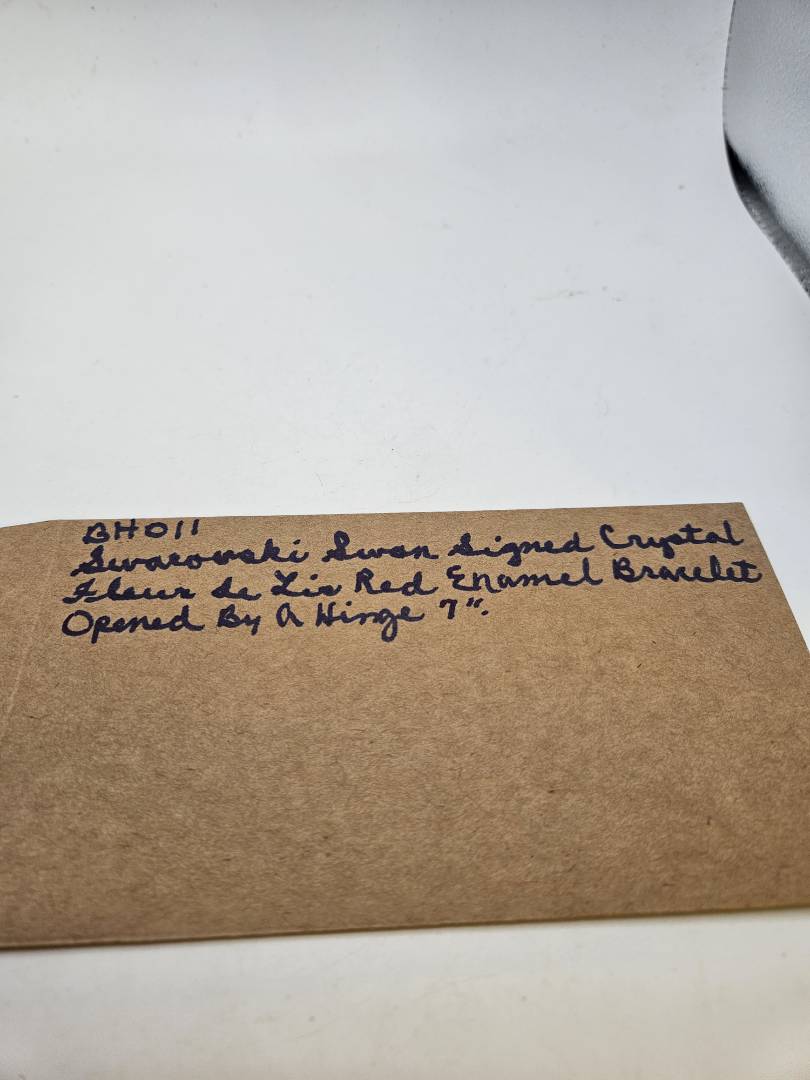 BH011
Swarovski Swan Signed Crystal
Fleur de Lis Red Enamel Bracelet
Opened By A Hinge 7".